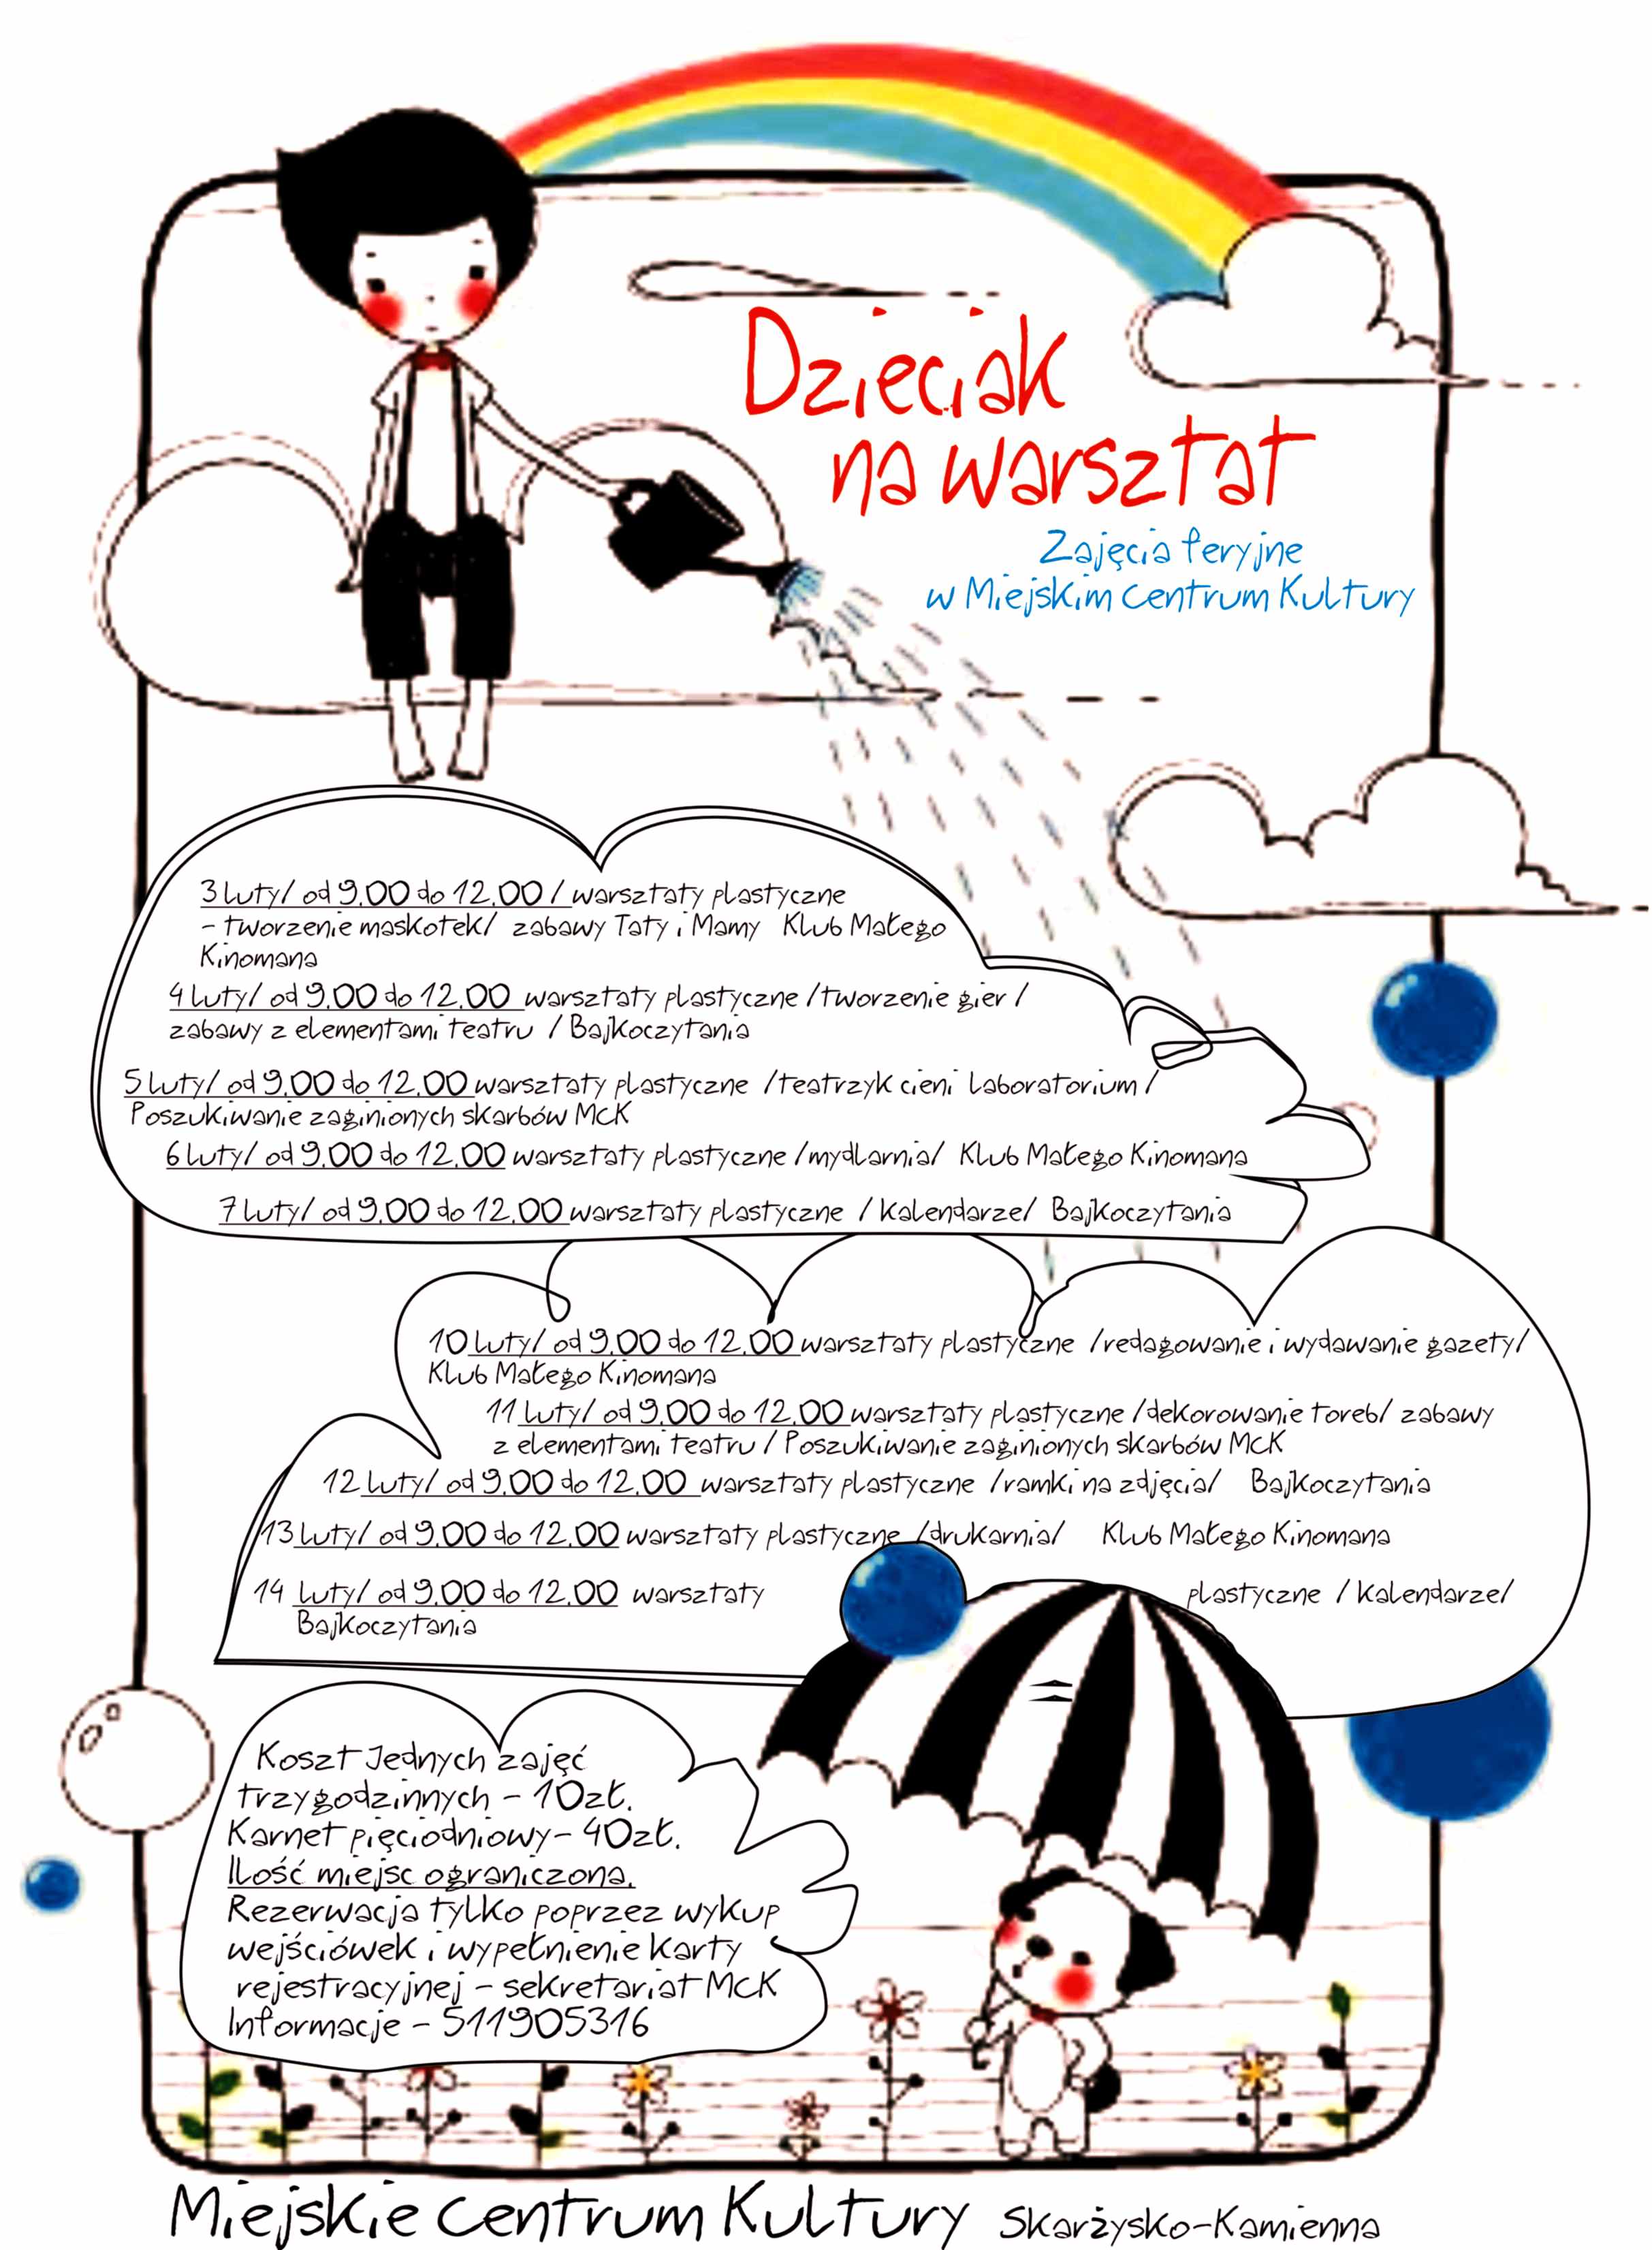 Dzieciak
na warsztat
Zajęcia feryjne
w Miejskim Centrum Kultury
3 luty/ od 9.00 do 12.00 / warsztaty plastyczne
- tworzenie maskotek/ zabawy Taty i Mamy Klub Małego
Kinomana
4 luty/ od 9.00 do 12.00 warsztaty plastyczne /tworzenie gier /
zabawy z elementami teatru / Bajkoczytania
5 luty/ od 9.00 do 12.00 warsztaty plastyczne /teatrzyk cieni Laboratorium /
Poszukiwanie zaginionych skarbów MCK
6 luty/ od 9.00 do 12.00 warsztaty plastyczne /mydlarnia/ Klub Małego Kinomana
7 luty/ od 9.00 do 12.00 warsztaty plastyczne / kalendarze/ Bajkoczytania
10 luty/ od 9.00 do 12.00 warsztaty plastyczne /redagowanie i wydawanie gazety/
Klub Małego Kinomana
11 luty/ od 9.00 do 12.00 warsztaty plastyczne /dekorowanie toreb/ zabawy
z elementami teatru / Poszukiwanie zaginionych skarbów MCK
12 luty/ od 9.00 do 12.00 warsztaty plastyczne /ramki na zdjęcia/ Bajkoczytania
13 luty/ od 9.00 do 12.00 warsztaty plastyczne /drukarnia/ Klub Małego Kinomana
14 luty/ od 9.00 do 12.00 warsztaty plastyczne / kalendarze/
Bajkoczytania
Koszt Jednych zajęć
trzygodzinnych - 10zł.
Karnet pięciodniowy- 40zł.
Ilość miejsc ograniczona.
Rezerwacja tylko poprzez wykup
wejściówek i wypełnienie karty
rejestracyjnej - sekretariat MCK
Informacje - 511905316
Miejskie Centrum Kultury Skarżysko-Kamienna